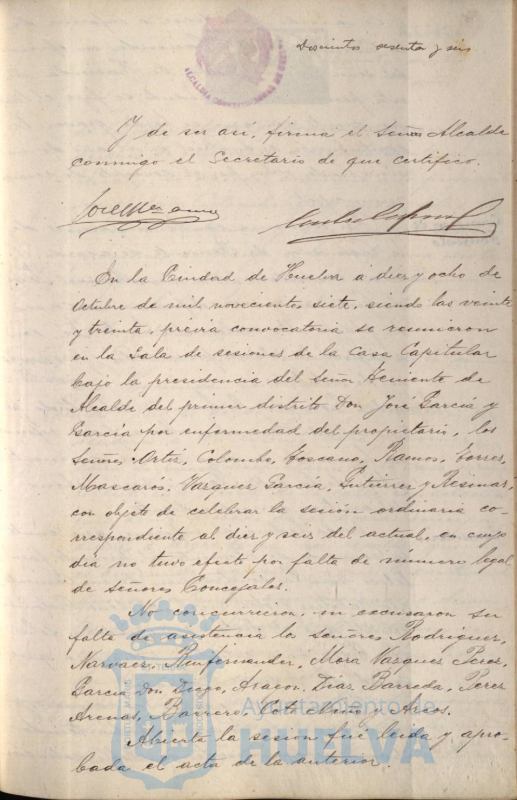 Doscientos sesenta y seis
ALCALDIA CONSTITUCIONAL DE HUELVA
Y de ser así, firma el Señor Alcalde
conmigo el Secretario de que certifico.
En la Ciudad de Huelva á diez y ocho de
Octubre de mil novecientos siete, siendo las veinte
y treinta, previa convocatoria se reunieron
en la Sala de sesiones de la Casa Capitular
bajo la presidencia del Señor Teniente de
Alcalde del primer distrito Don José García y
García por enfermedad del propietario, los
Señores Ortiz, Colombo, Toscano, Ramos, Torres,
Mascarós, Vazquez García, Gutierrez y Resinas,
con objeto de celebrar la sesión ordinaria co-
rrespondiente al diez y seis del actual, en cuyo
día no tuvo efecto por falta de número legal
de Señores Concejales.
No concurrieron, ni excusaron su
falta de asistencia los señores Rodriguez,
Narvaez, Mora, Vazquez Perez,
García Don Diego, Aragon, Diaz Barreda, Perez
Arenas, Barrero, Coto Mora y Arcos.
Abierta la sesión fué leida y apro-
bada el acta de la anterior.
Ayuntamiento de
HUELVA